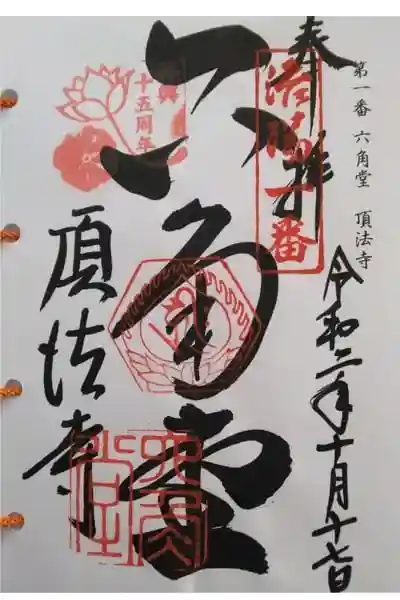 第一番 六角堂 頂法寺
令和二年十月十七日
奉拝
洛陽一番
六角堂
頂法寺
再興
十五周年
六角堂